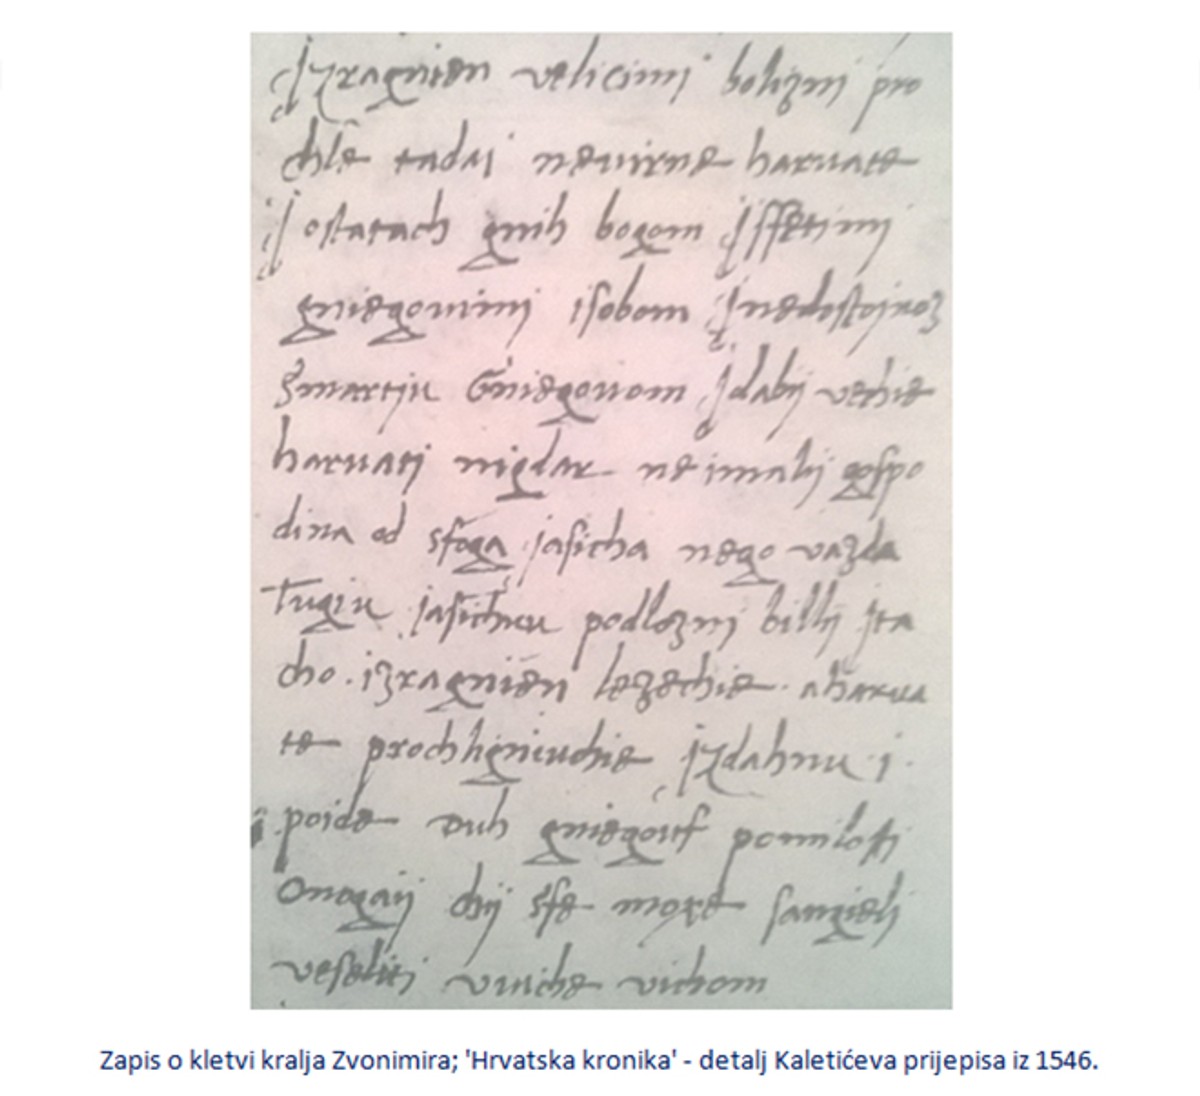 Izragnien velicimi bolizni pro
chle tadaj neuirne haruate
ij ostatach gnih bogom Issfetimi
gniegouimi isobom Inedostojnoz
Smartju Gniegouom Idabij vechie
haruatj nigdar ne imalij gospo
dina od sfoga jasicha nego vazda
Tugiu jasichu podlozni billij Ita
cho. izragnien lezechie. aharua
te prochligniuchie izdahnu. i.
poide Duh gniegouf pomilosti
Onogaij chij sfe more sangieli
veseliti vuiche vichom
Zapis o kletvi kralja Zvonimira; 'Hrvatska kronika' - detalj Kaletićeva prijepisa iz 1546.